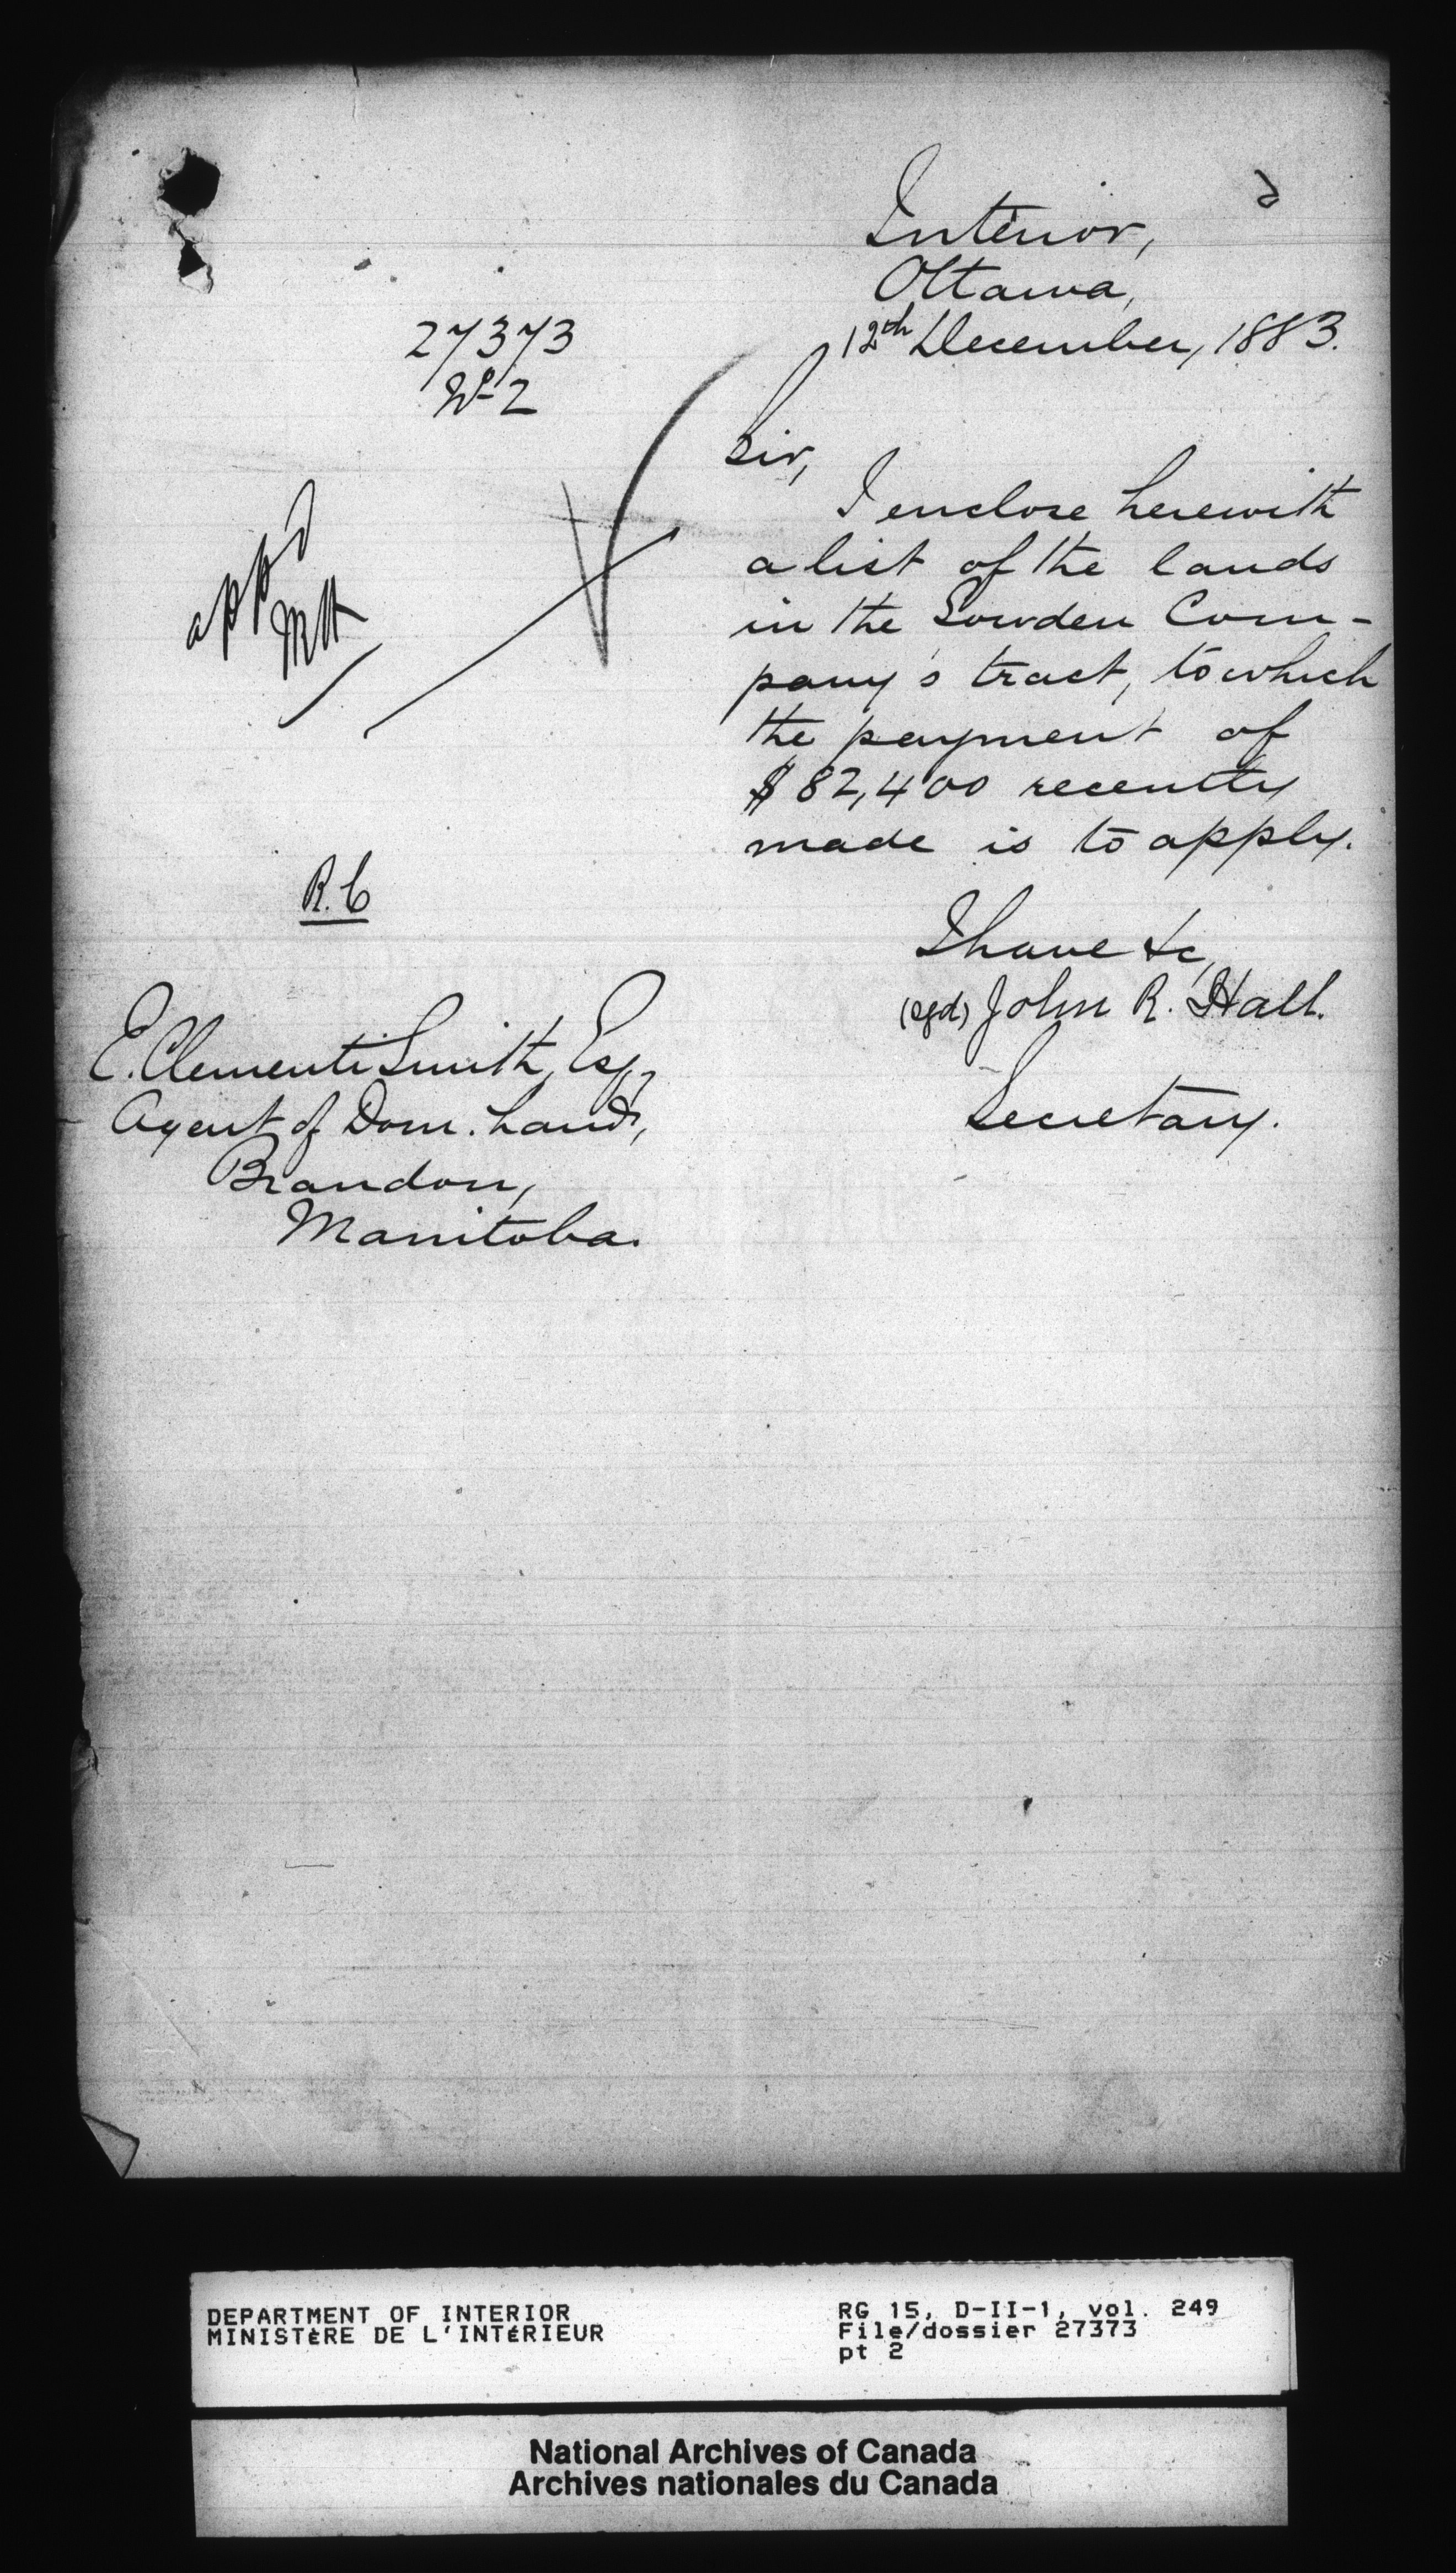 Interior,
Ottawa,
12th December, 1883.
27373
No 2
Sir,
I enclose herewith
a list of the lands
in the Sowden Com-
pany's tract, to which
the payment of
$82,400 recently
made is to apply.
appd
MH
R.C
I have &c,
(sgd) John R. Hall.
Secretary.
E. Clementi Smith, Esq,
Agent of Dom. Lands,
Brandon,
Manitoba.
DEPARTMENT OF INTERIOR
MINISTÈRE DE L'INTÉRIEUR
RG 15, D-II-1, vol. 249
File/dossier 27373
pt 2
National Archives of Canada
Archives nationales du Canada